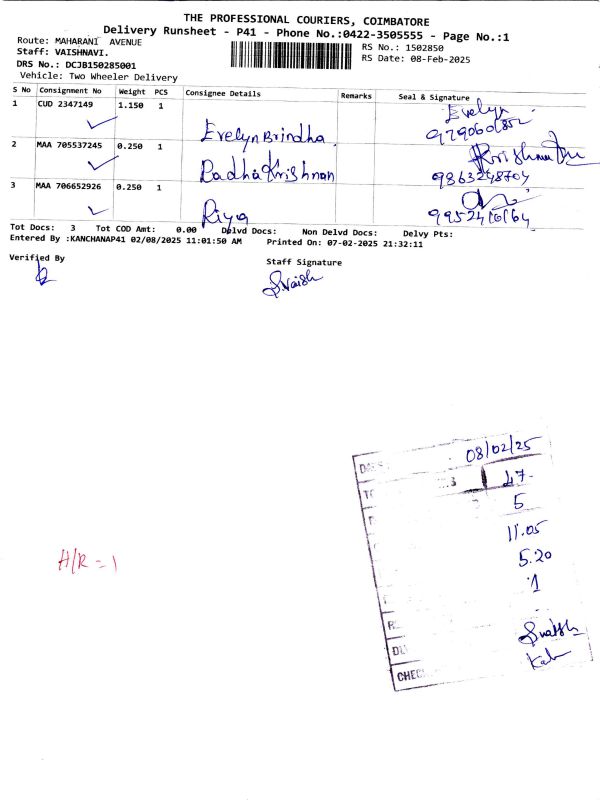 THE PROFESSIONAL COURIERS, COIMBATORE
Delivery Runsheet - P41 - Phone No.:0422-3505555 - Page No.:1
Route: MAHARANI AVENUE
RS No.: 1502850
Staff: VAISHNAVI.
RS Date: 08-Feb-2025
DRS No.: DCJB150285001
Vehicle: Two Wheeler Delivery
S No Consignment No Weight PCS Consignee Details Remarks Seal & Signature
1 CUD 2347149 1.150 1
Evelyn
EvelynBrindha
2 MAA 705537245 0.250 1
RadhaKrishnan
9863248704
3 MAA 706652926 0.250 1
Riya
Tot Docs: 3 Tot COD Amt: 0.00 Delvd Docs: Non Delvd Docs: Delvy Pts:
Entered By :KANCHANAP41 02/08/2025 11:01:50 AM Printed On: 07-02-2025 21:32:11
Verified By
Staff Signature
S.Vaish
08/02/25
47-
5
11.05
5.20
1
H/R = 1